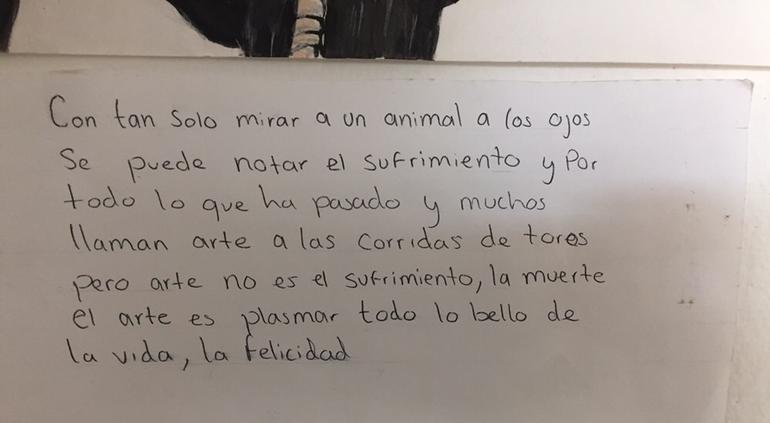 Con tan solo mirar a un animal a los ojos
Se puede notar el sufrimiento y Por
todo lo que ha pasado y muchos
llaman arte a las corridas de toros
pero arte no es el sufrimiento, la muerte
el arte es plasmar todo lo bello de
la vida, la felicidad